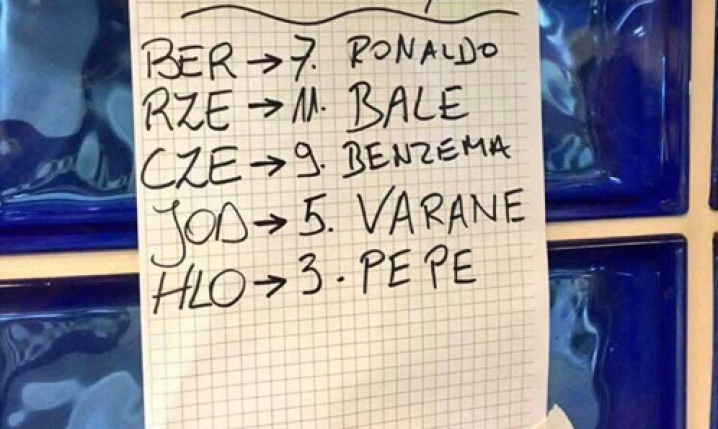 BER → 7. RONALDO
RZE → 11. BALE
CZE → 9. BENZEMA
JOD → 5. VARANE
HLO → 3. PEPE